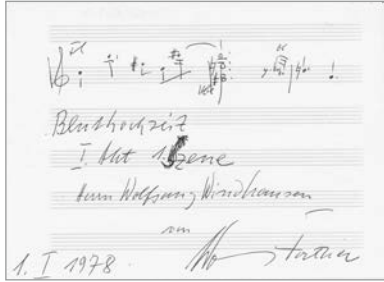 Bluthochzeit
I. Akt 1. Szene
Herrn Wolfgang Windhausen
von
Fortner
1. I 1978.